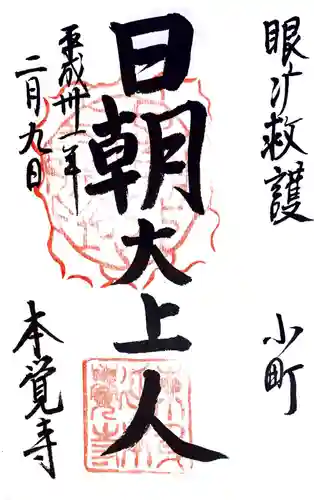 眼け救護
小町
日朝大上人
平成卅一年
二月九日
本覚寺